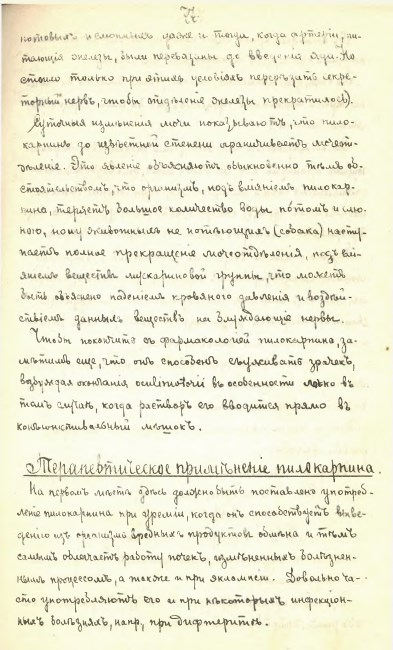 7.
потовыхъ и слюнныхъ даже и тогда, когда артеріи, пи-
тающія железы, были перевязаны до введенія яда. Но
стоило только при этихъ условіяхъ перерѣзать секре-
торный нервъ, чтобы отдѣленіе железы прекратилось).
Суточныя измѣненія мочи показываютъ, что пило-
карпинъ до извѣстной степени ограничиваетъ мочеот-
дѣленіе. Это явленіе объясняютъ обыкновенно тѣмъ об-
стоятельствомъ, что организмъ, подъ вліяніемъ пилокар-
пина, теряетъ большое количество воды потомъ и слю-
ною, но и у животныхъ не потѣющихъ (собака) насту-
паетъ полное прекращеніе мочеотдѣленія, подъ влі-
яніемъ веществъ мускариновой группы, что можетъ
быть объяснено паденіемъ кровяного давленія и воздѣй-
ствіемъ данныхъ веществъ на блуждающіе нервы.
Чтобы покончить съ фармакологіей пилокарпина, за-
мѣтимъ еще, что онъ способенъ съуживать зрачекъ,
возбуждая окончанія oculomotorii въ особенности въ
томъ случаѣ, когда растворъ его вводится прямо въ
конъюнктивальный мѣшокъ.
Терапевтическое примѣненіе пилокарпина.
На первомъ мѣстѣ здѣсь должно быть поставлено употреб-
леніе пилокарпина при уреміи, когда онъ способствуетъ выве-
денію изъ организма вредныхъ продуктовъ обмѣна и тѣмъ
самымъ облегчаетъ работу почекъ, измѣненныхъ болѣзнен-
нымъ процессомъ, а также и при эклампсіи. Довольно ча-
сто употребляютъ его и при нѣкоторыхъ инфекціон-
ныхъ болѣзняхъ, напр., при дифтеритѣ.